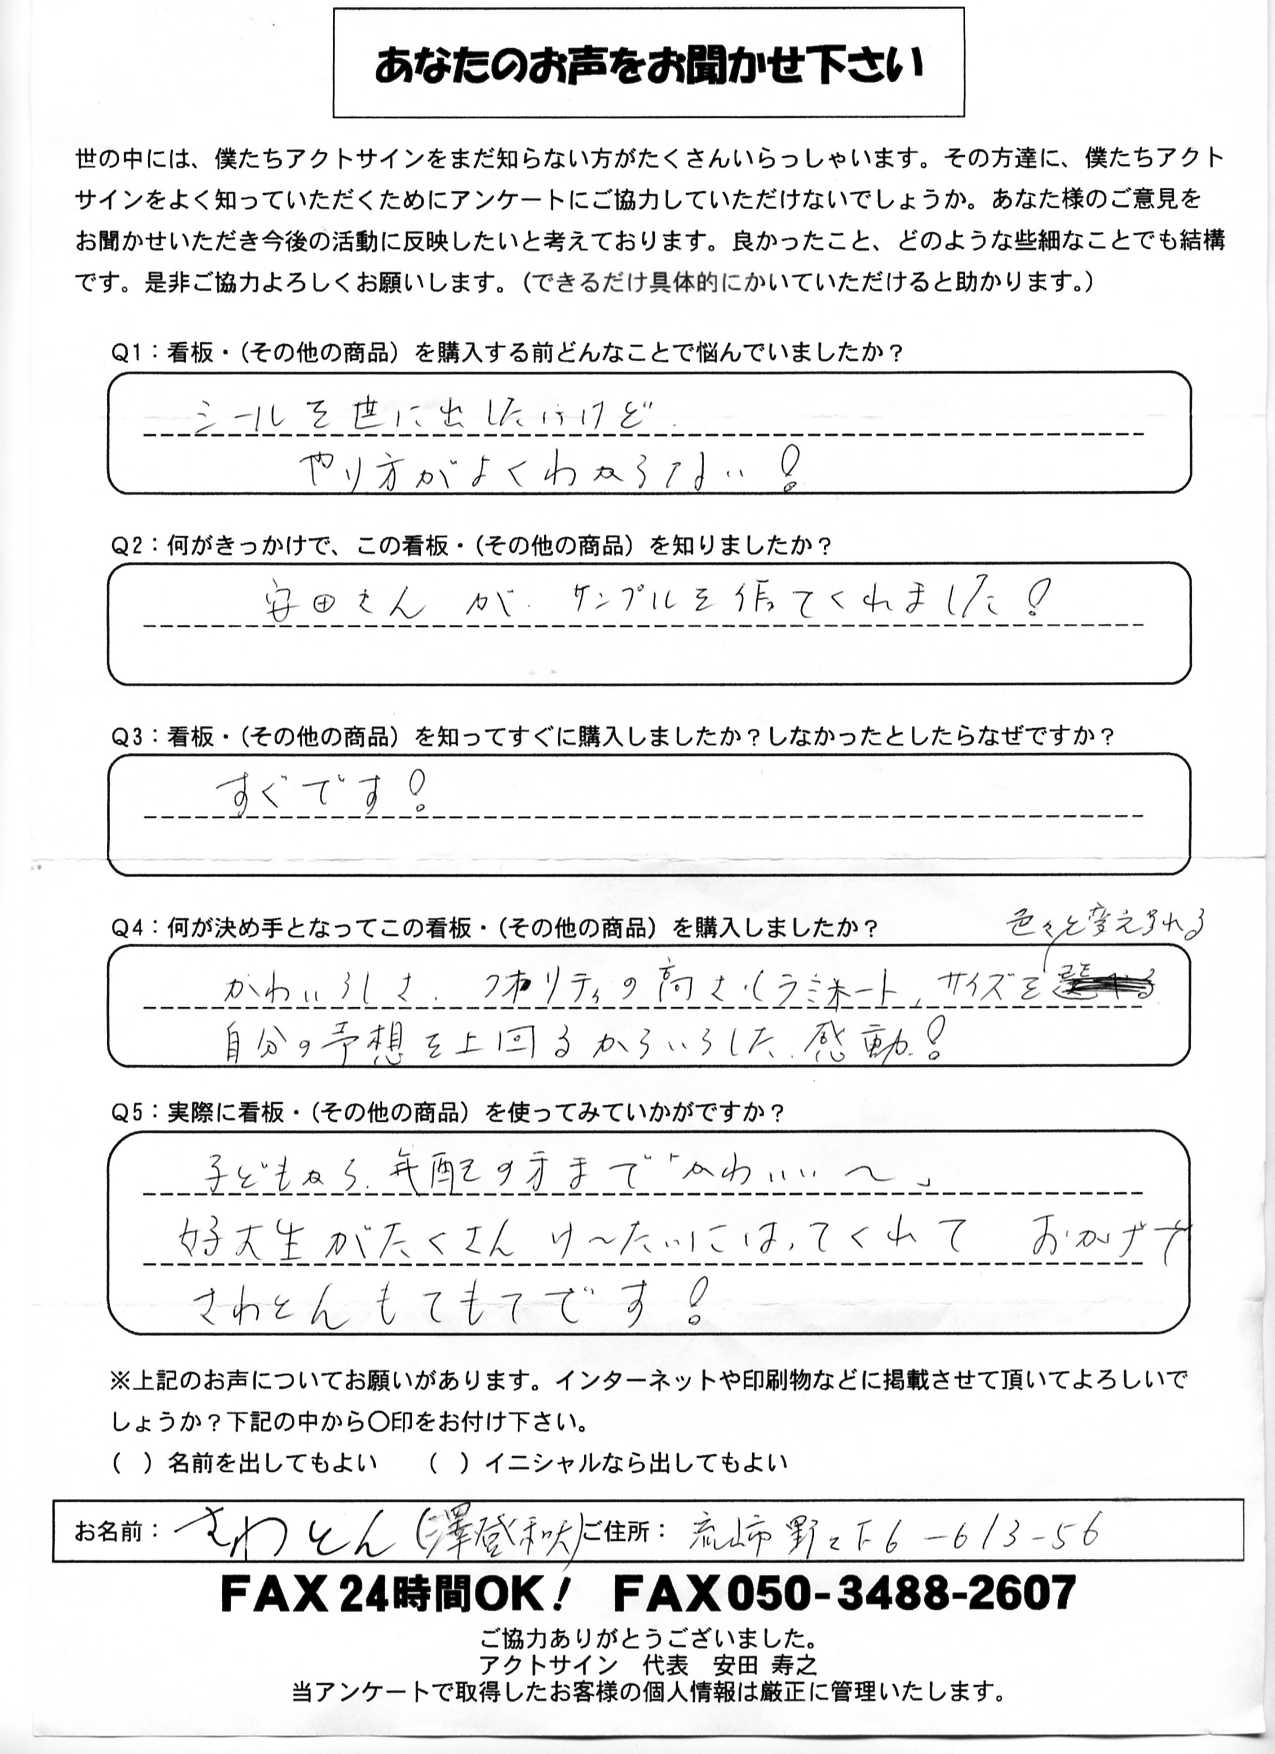 あなたのお声をお聞かせ下さい
世の中には、僕たちアクトサインをまだ知らない方がたくさんいらっしゃいます。その方達に、僕たちアクト
サインをよく知っていただくためにアンケートにご協力していただけないでしょうか。あなた様のご意見を
お聞かせいただき今後の活動に反映したいと考えております。良かったこと、どのような些細なことでも結構
です。是非ご協力よろしくお願いします。(できるだけ具体的にかいていただけると助かります。)
Q1：看板・(その他の商品) を購入する前どんなことで悩んでいましたか？
シールを世に出したいけど
やり方がよくわからない!
Q2：何がきっかけで、この看板・(その他の商品) を知りましたか？
安田さんが サンプルを作ってくれました!
Q3：看板・(その他の商品) を知ってすぐに購入しましたか？しなかったとしたらなぜですか？
すぐです!
Q4：何が決め手となってこの看板・(その他の商品) を購入しましたか？
色々と変えられる
かわいらしさ、クオリティの高さ(ラミネート、サイズを
自分の予想を上回る 感動!
Q5：実際に看板・(その他の商品) を使ってみていかがですか？
子どもから、年配の方まで「かわいい〜」
大生がたくさん けーたいにはってくれて おかげで
さわとんもてもてです!
※上記のお声についてお願いがあります。インターネットや印刷物などに掲載させて頂いてよろしいで
しょうか？下記の中から〇印をお付け下さい。
( ) 名前を出してもよい ( ) イニシャルなら出してもよい
お名前： さわとん(澤登和夫) ご住所： 流山市野々下6-613-56
FAX24時間OK! FAX050-3488-2607
ご協力ありがとうございました。
アクトサイン 代表 安田 寿之
当アンケートで取得したお客様の個人情報は厳正に管理いたします。